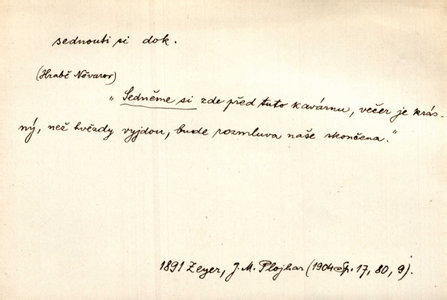 sednouti si dok.
(Hrabě Nóvaror)
„Sedněme si zde před tuto kavárnu, večer je krás-
ný, než hvězdy vyjdou, bude rozmluva naše skončena."
1891 Zeyer, J. M. Plojhar (1904 Sp. 17, 80, 9).